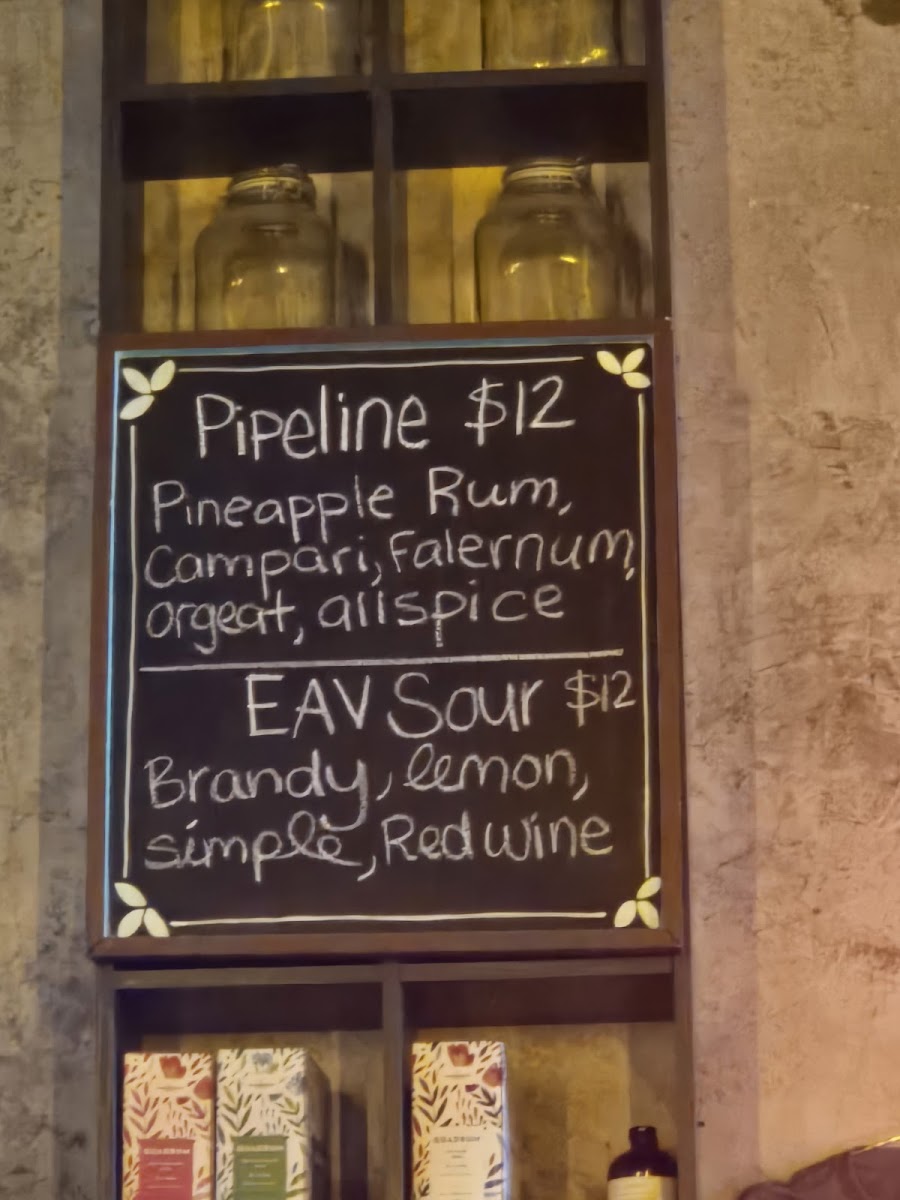 Pipeline $12
Pineapple Rum,
Campari, Falernum,
orgeat, allspice
EAV Sour $12
Brandy, lemon,
simple, Red wine